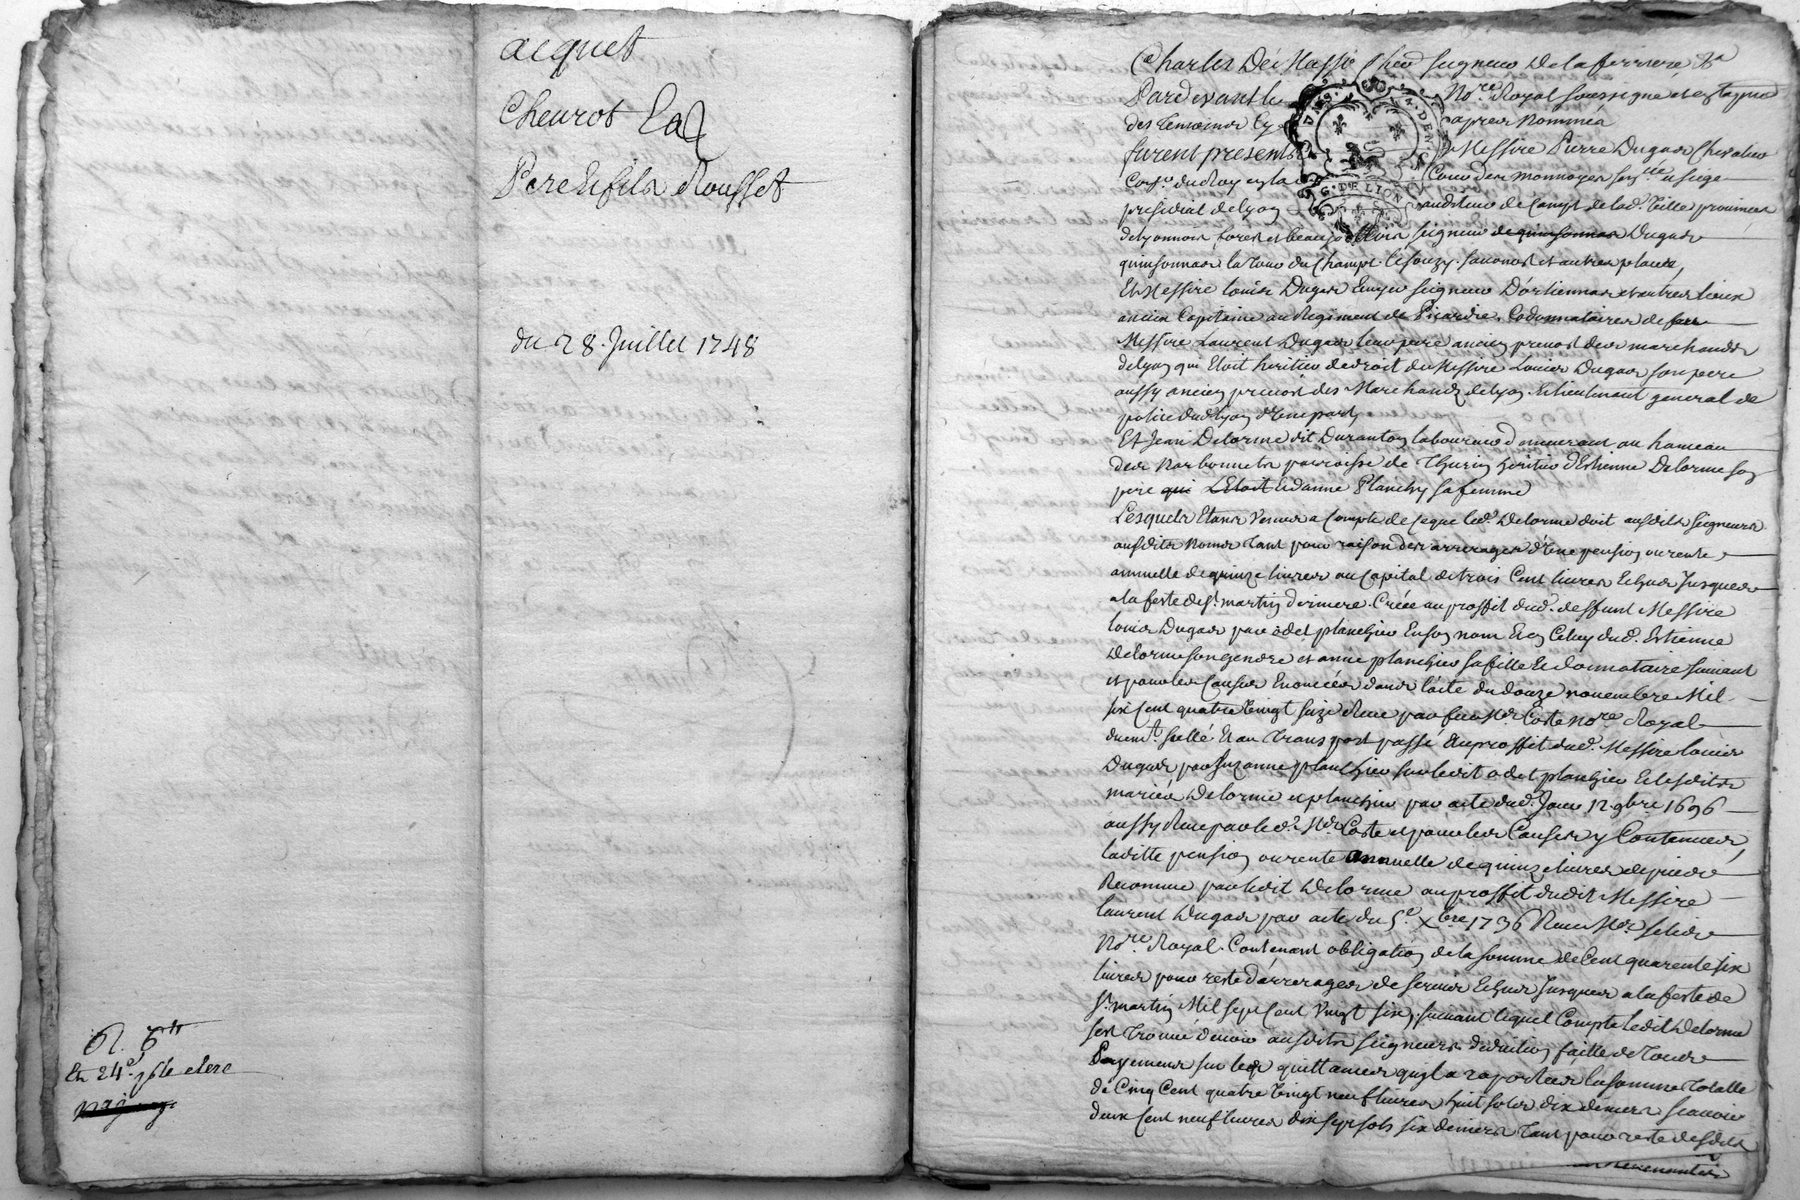 acquet
Cheurot
Pere Et fils Rousset
du 28. Juillet 1748
Et 24s. pr le clerc
Charles De Masso Cher seigneur De la ferriere &a
Pardevant le Nore. Royal soussigné et en la pnce
des temoins Cy apres Nommés
furent presents Messire Pierre Dugas Chevalier
Coner. du Roy en la Cour Des monnoyes senée. et siege
presidial de Lyon auditeur de Camps de lad. Ville province
de Lyonnois forest et Beaujollois seigneur de quinsonnas Dugas
quinsonnas la Tour du Champt. Savonost et autres places,
Et Messire Louis Dugas Ecuyer seigneur D'ortiennas et autres lieux
ancien Capitaine au Regiment de Picardie, Codonnataires de feu
Messire Laurent Dugas leur pere ancien prevost des marchands
de Lyon qui Etoit heritier de droit de Messire Louis Dugas son pere
aussy ancien prevost des Marchands de Lyon et lieutenant general de
police dud. Lyon d'Une part,
Et Jean Delorme dit Duranton laboureur demeurant au hameau
des Narbonnets parroisse de Thurin heritier d'Estienne Delorme son
pere qui L'Etoit et d'anne Planchy sa femme
Lesquels Etans Venus a Compte de ce que led. Delorme doit ausdits seigneurs
ausdits Noms tant pour raison des arrerages d'Une pension ou rente
annuelle de quinze livres au Capital de trois Cent livres Echus Jusques
a la feste de St. martin derniere. Créée au proffit dud. deffunt Messire
Louis Dugas par odet planchier En son nom Et en Celuy dud. Estienne
Delorme son gendre et anne planchier sa fille Et donnataire suivant
et pour les Causes Enoncées dans l'acte du douze novembre Mil
six Cent quatre Vingt seize Reçue par feu Me. Coste Nore. Royal
duemt. scellé. Et au Transport passé Au proffit dud. Messire Louis
Dugas par Suzanne planchier sur ledit odet planchier Et lesdits
mariés Delorme et planchier par acte dud. Jour 12 9bre 1696
aussy Reçue par led. Me. Coste et pour les Causes y Contenues,
laditte pension ou rente annuelle de quinze livres depuis
Reconnue par ledit Delorme au proffit dudit Messire
Laurent Dugas par acte du 5e. Xbre 1736 Reçue Me.
Nore. Royal. Contenant obligation de la somme de Cent quarente six
livres pour reste d'arrerages de servis Echus Jusques a la feste de
St. martin Mil sept Cent Vingt six, suivant lequel Compte ledit Delorme
s'est Trouvé devoir ausdits seigneurs deduction faitte de Tous
Payemens sur les quittances qu'il a raportées la somme Totalle
de Cinq Cent quatre Vingt neuf livres huit sols dix deniers sçavoir
deux Cent neuf livres dix sept sols six deniers Tant pour reste desdits